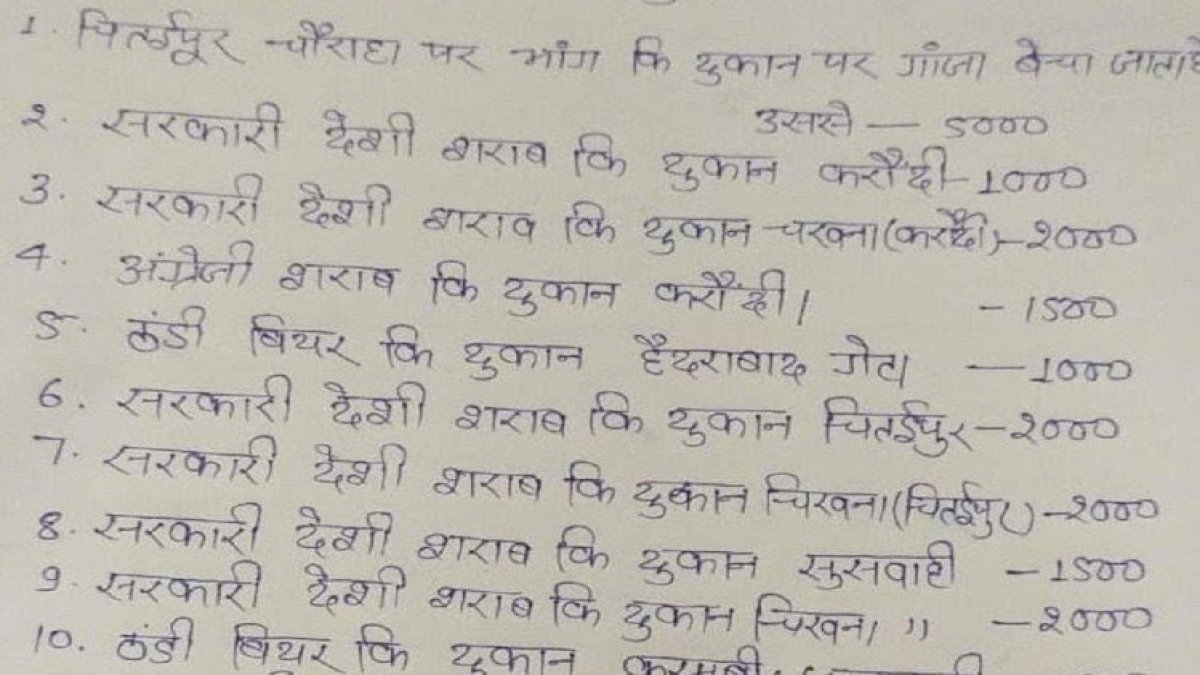 1. चितईपूर चौराहा पर भांग कि दुकान पर गांजा बेचा जाता है
उससे — 5000
२. सरकारी देशी शराब कि दुकान करौंदी - 1000
3. सरकारी देशी शराब कि दुकान चखना (करौंदी) - २०००
4. अंग्रेजी शराब कि दुकान करौंदी। - 1500
5. ठंडी बियर कि दुकान हैदराबाद गेट। — 1000
6. सरकारी देशी शराब कि दुकान चितईपुर - २०००
7. सरकारी देशी शराब कि दुकान चिखना (चितईपुर) - २०००
8. सरकारी देशी शराब कि दुकान सुसवाही - 1500
9. सरकारी देशी शराब कि दुकान चिखना " - २०००
10. ठंडी बियर कि दुकान